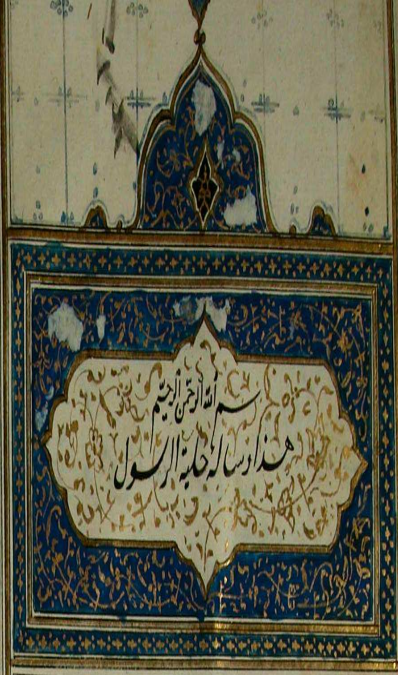 بسم الله الرحمن الرحيم
هذا رساله حلية الرسول